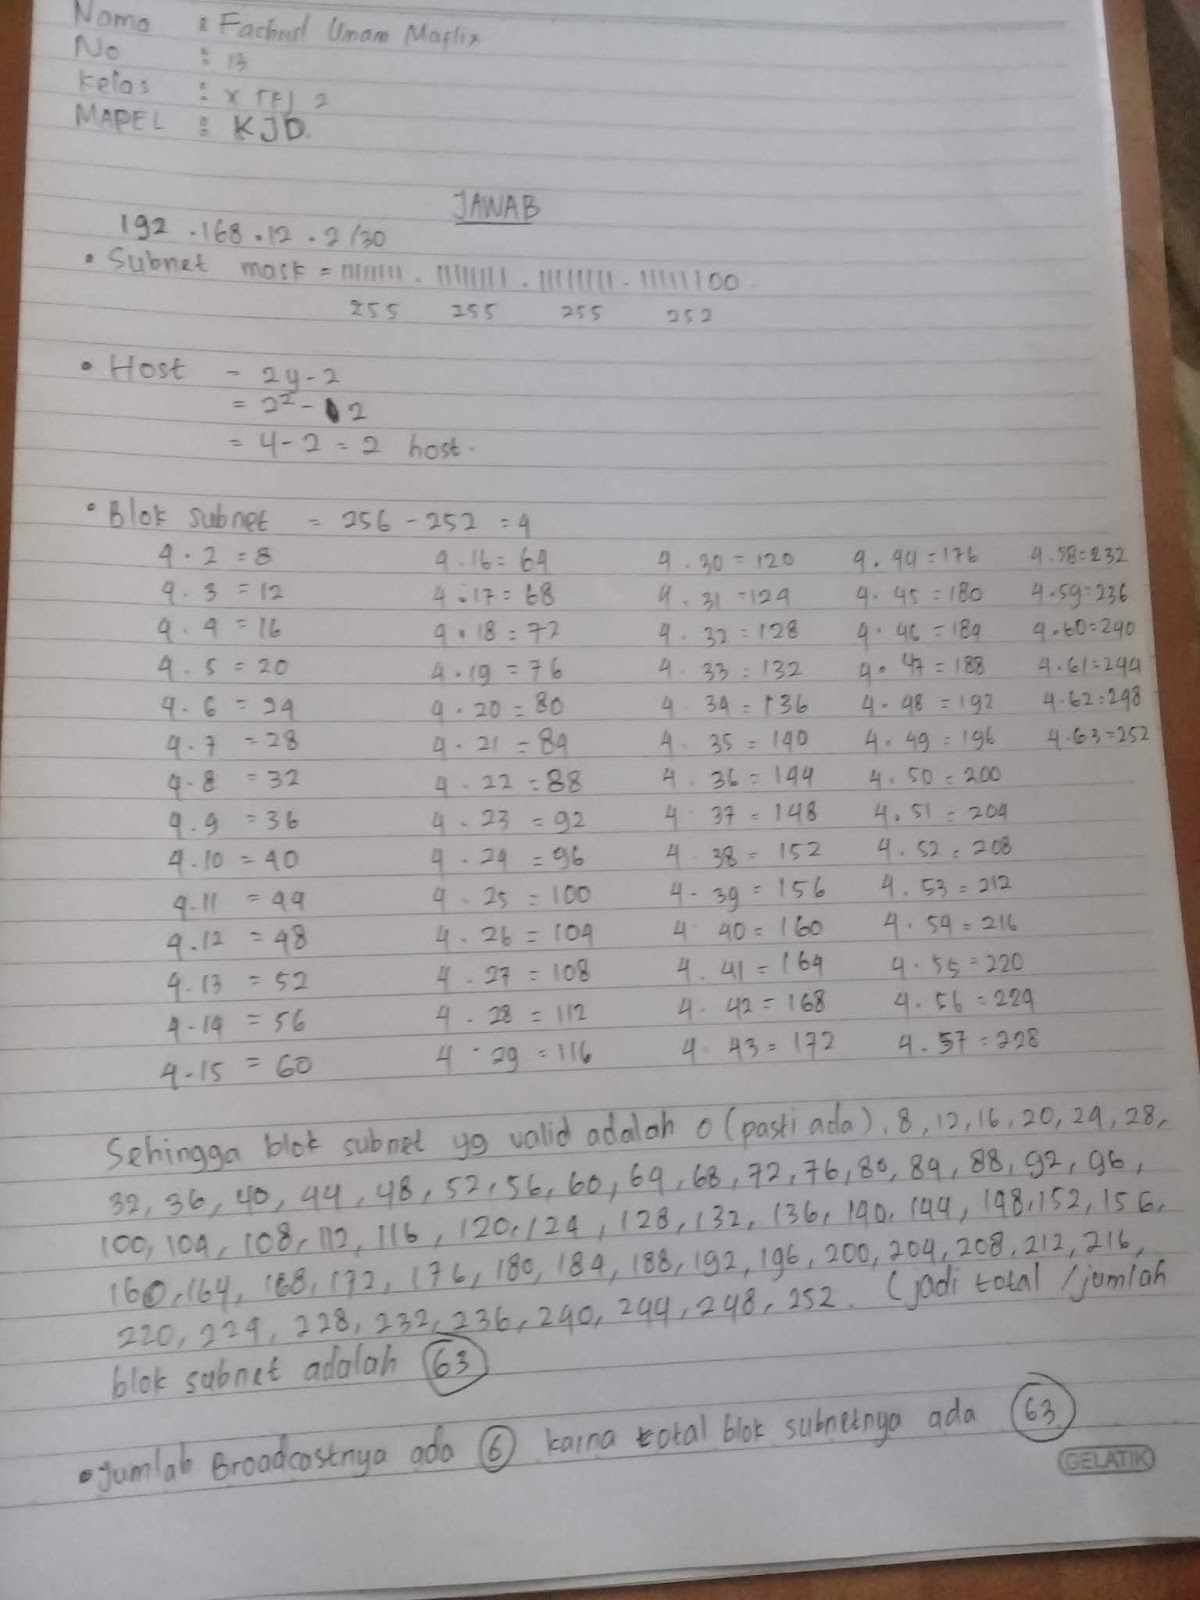 Nama : Fachrul Umam Maflix
No : 13
Kelas : X TKJ 2
MAPEL : KJD.
JAWAB
192.168.12.2/30
• Subnet mask = 11111111 . 11111111 . 11111111 . 11111100
255 255 255 252
• Host = 2y-2
= 2²- 2
= 4-2 = 2 host.
• Blok subnet = 256 - 252 = 4
4.2 = 8 4.16 = 64 4.30 = 120 4.44 = 176 4.58 = 232
4.3 = 12 4.17 = 68 4.31 = 124 4.45 = 180 4.59 = 236
4.4 = 16 4.18 = 72 4.32 = 128 4.46 = 184 4.60 = 240
4.5 = 20 4.19 = 76 4.33 = 132 4.47 = 188 4.61 = 244
4.6 = 24 4.20 = 80 4.34 = 136 4.48 = 192 4.62 = 248
4.7 = 28 4.21 = 84 4.35 = 140 4.49 = 196 4.63 = 252
4.8 = 32 4.22 = 88 4.36 = 144 4.50 = 200
4.9 = 36 4.23 = 92 4.37 = 148 4.51 = 204
4.10 = 40 4.24 = 96 4.38 = 152 4.52 = 208
4.11 = 44 4.25 = 100 4.39 = 156 4.53 = 212
4.12 = 48 4.26 = 104 4.40 = 160 4.54 = 216
4.13 = 52 4.27 = 108 4.41 = 164 4.55 = 220
4.14 = 56 4.28 = 112 4.42 = 168 4.56 = 224
4.15 = 60 4.29 = 116 4.43 = 172 4.57 = 228
Sehingga blok subnet yg valid adalah 0 (pasti ada), 8, 12, 16, 20, 24, 28,
32, 36, 40, 44, 48, 52, 56, 60, 64, 68, 72, 76, 80, 84, 88, 92, 96,
100, 104, 108, 112, 116, 120, 124, 128, 132, 136, 140, 144, 148, 152, 156,
160, 164, 168, 172, 176, 180, 184, 188, 192, 196, 200, 204, 208, 212, 216,
220, 224, 228, 232, 236, 240, 244, 248, 252. (jadi total / jumlah
blok subnet adalah 63
• jumlah Broadcastnya ada 6 karna total blok subnetnya ada 63
GELATIK